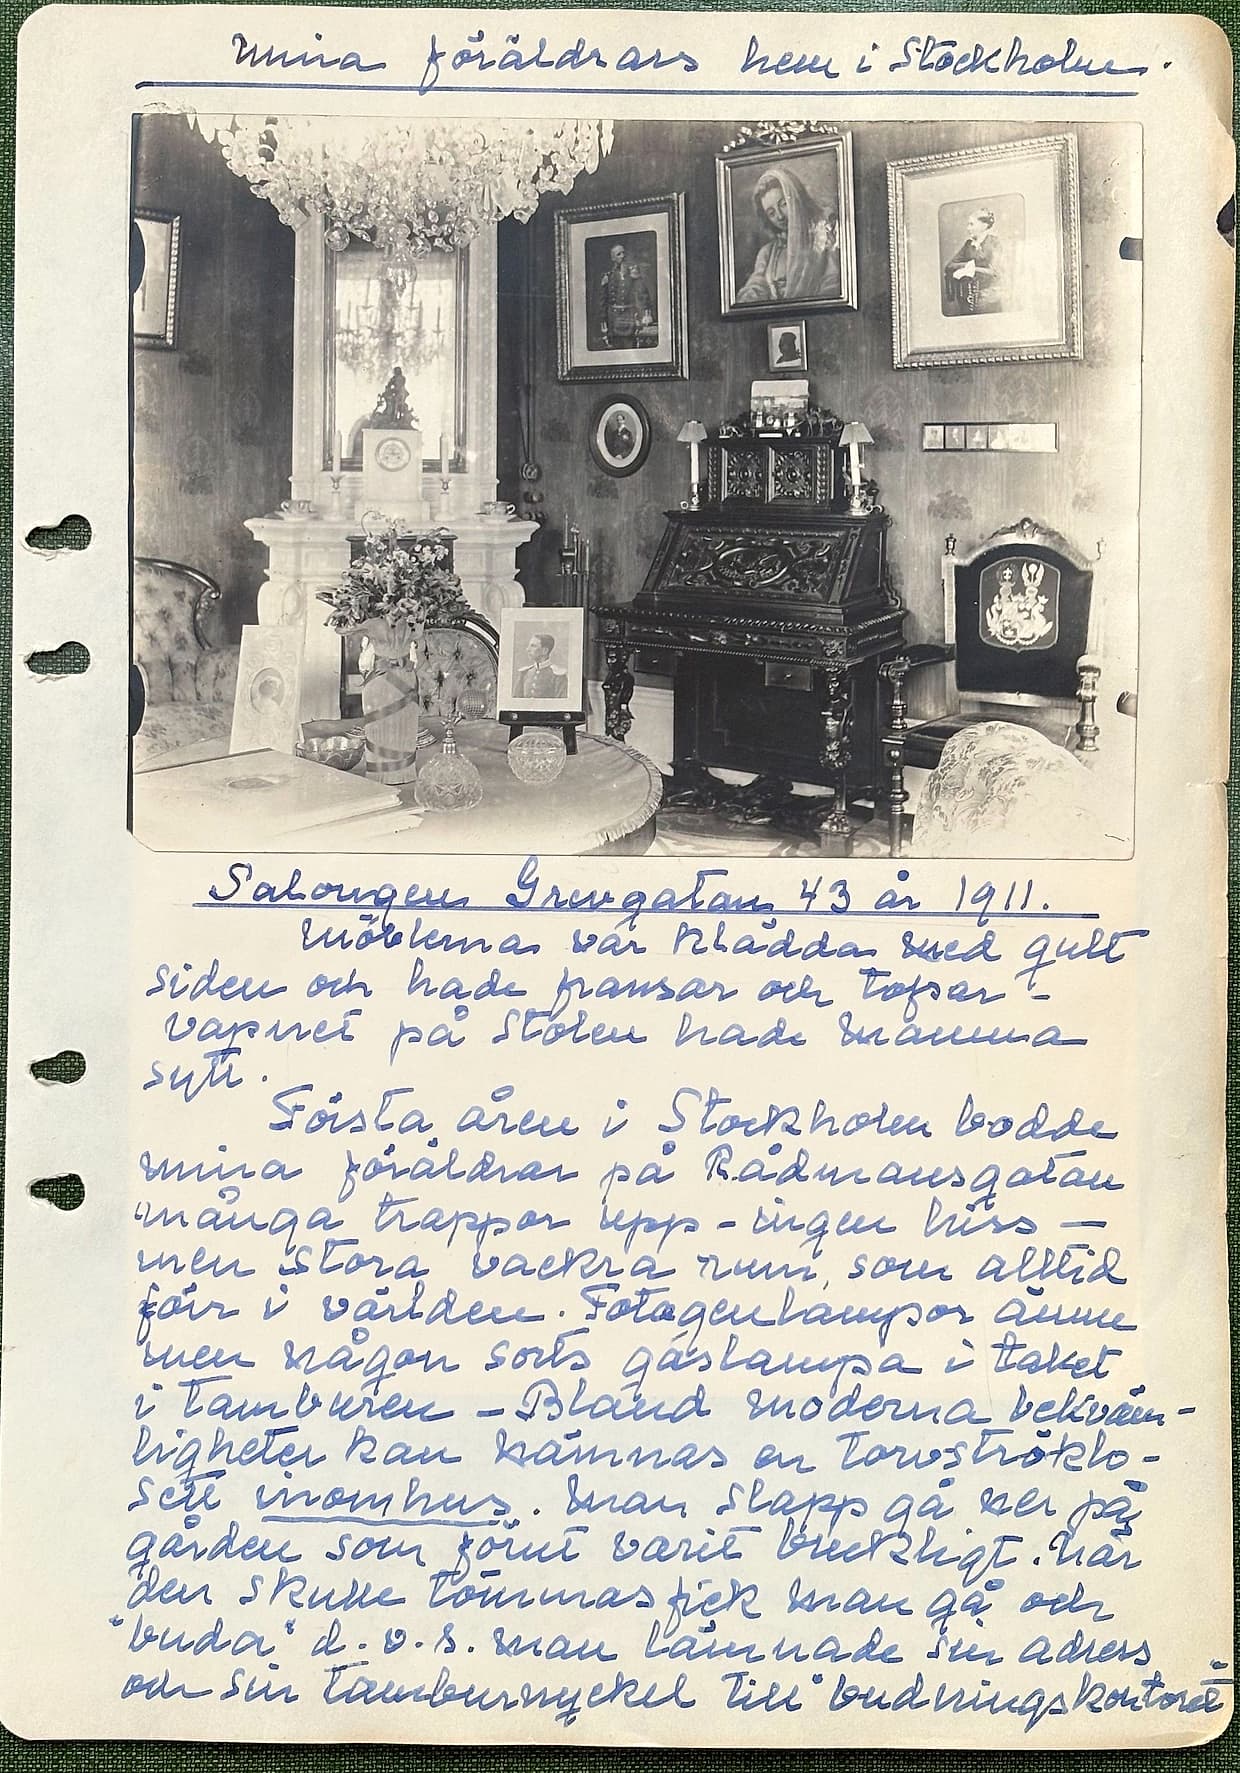 Mina föräldrars hem i Stockholm.
Salongen Grevgatan 43 år 1911.
Möblerna var klädda med gult
siden och hade fransar och tofsar -
vapnet på stolen hade mamma
sytt.
Första åren i Stockholm bodde
mina föräldrar på Rådmansgatan
många trappor upp - ingen hiss -
men stora vackra rum, som alltid
förr i världen. Fotogenlampor ännu
men någon sorts gaslampa i taket
i tamburen - Bland moderna bekväm-
ligheter kan nämnas en torvströklo-
sett inomhus. Man slapp gå ner på
gården som förut varit brukligt. När
den skulle tömmas fick man gå och
"buda" d.v.s. man lämnade sin adress
och sin tamburnyckel till "budningskontoret"